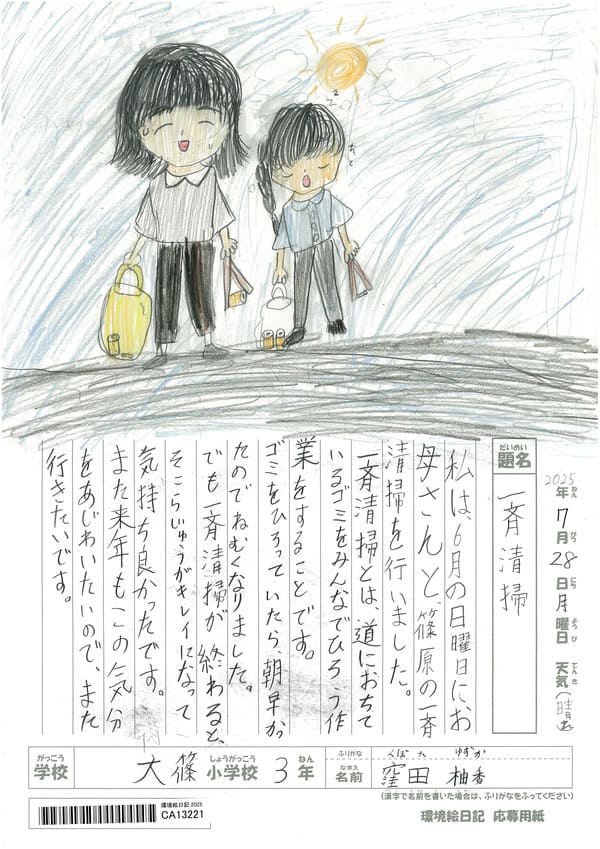 zzz
だいめい
題名
一斉清掃
2025年 7月 28日 月曜日 天気(晴れ)
ねん がつ にち ようび てんき
私は、6月の日曜日に、お
母さんと、篠原の一斉
清掃を行いました。
一斉清掃とは、道におちて
いるゴミをみんなでひろう作
業をすることです。
ゴミをひろっていたら、朝早かっ
たのでねむくなりました。
でも一斉清掃が終わると、
そこらじゅうがキレイになって
気持ち良かったです。
また来年もこの気分
をあじわいたいので、また
行きたいです。
がっこう しょうがっこう ねん
学校 大篠 小学校 3年
ふりがな くぼた ゆずか
なまえ
名前 窪田 柚香
(漢字で名前を書いた場合は、ふりがなをふってください)
環境絵日記 2025
CA13221
環境絵日記 応募用紙